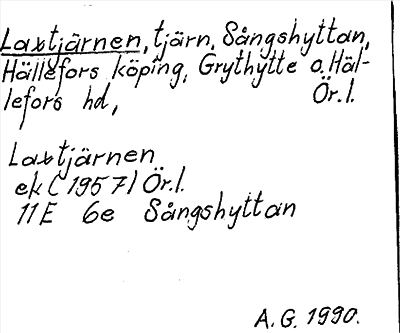 Laxtjärnen, tjärn, Sångshyttan,
Hällefors köping, Grythytte o. Häl-
lefors hd, Ör.l.
Laxtjärnen
ek (1957) Ör.l.
11E 6e Sångshyttan
A.G. 1990.